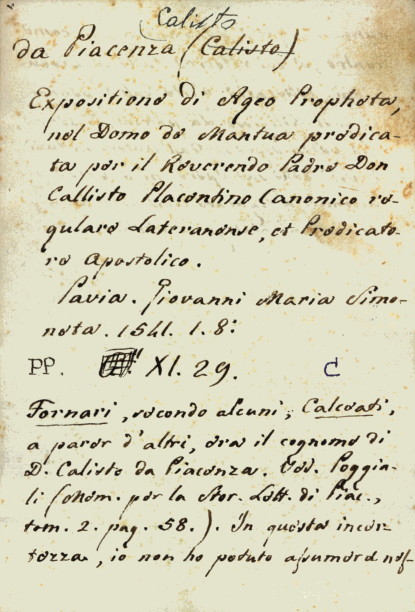 Calisto
da Piacenza (Calisto)
Expositione di Ageo Propheta,
nel Domo de Mantua predica-
ta per il Reverendo Padre Don
Callisto Placentino Canonico re-
gulare Lateranense, et Predicato-
re Apostolico.
Pavia. Giovanni Maria Simo-
neta. 1541. 1. 8:
PP. XI. 29. C
Fornari, secondo alcuni, Calcoati,
a parer d'altri, era il cognome di
D. Calisto da Piacenza. Ved. Poggia-
li (Mem. per la Stor. Lett. di Piac.,
tom. 2. pag. 58.). In questa incer-
tezza, io non ho potuto assumere nes-